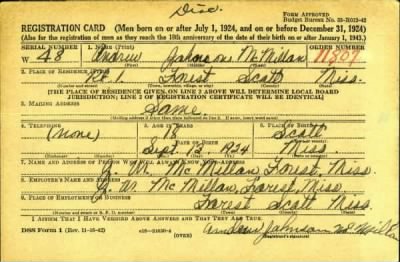 Disc.
FORM APPROVED
Budget Bureau No. 33-R012-42
REGISTRATION CARD (Men born on or after July 1, 1924, and on or before December 31, 1924)
(Also for the registration of men as they reach the 18th anniversary of the date of their birth on or after January 1, 1943.)
SERIAL NUMBER 1. NAME ORDER NUMBER
W 48 Andrew Johnson McMillan 11507
2. PLACE OF RESIDENCE
Rt. 1. Forest Scott Miss.
[THE PLACE OF RESIDENCE GIVEN ON LINE 2 ABOVE WILL DETERMINE LOCAL BOARD
JURISDICTION; LINE 2 OF REGISTRATION CERTIFICATE WILL BE IDENTICAL]
3. MAILING ADDRESS
Same.
4. TELEPHONE 5. AGE IN YEARS 6. PLACE OF BIRTH
(none) 18 Scott
DATE OF BIRTH
Sept. 13, 1924 Miss.
7. NAME AND ADDRESS OF PERSON WHO WILL ALWAYS KNOW YOUR ADDRESS
W. McMillan, Forest, Miss.
8. EMPLOYER'S NAME AND ADDRESS
W. McMillan, Forest, Miss.
9. PLACE OF EMPLOYMENT OR BUSINESS
Forest Scott Miss.
I AFFIRM THAT I HAVE VERIFIED ABOVE ANSWERS AND THAT THEY ARE TRUE.
DSS Form 1 (Rev. 11-16-42) (OVER) Johnson